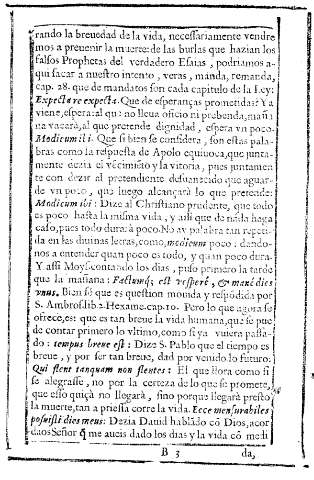 rando la breuedad de la vida, necessariamente vendre
mos a preuenir la muerte: de las burlas que hazian los
falsos Prophetas del verdadero Esaias, podriamos a-
qui sacar a nuestro intento, veras, manda, remanda,
cap. 28. que de mandatos son cada capitulo de la Ley:
Expecta re expecta. Que de esperanças prometidas? Ya
viene, espera: al que no lleua oficio ni prebenda, maña
na vacarà, al que pretende dignidad, espera vn poco.
Modicum ibi. Que si bien se considera, son estas pala-
bras como la respuesta de Apolo equiuoca, que junta-
mente dezia el vécimiéto y la vitoria, pues juntamen
te con dezir al pretendiente desuanecido que aguar-
de vn poco, que luego alcançarà lo que pretende:
Modicum ibi: Dize al Christiano prudente, que todo
es poco hasta la misma vida, y assi que de nada haga
caso, pues todo durarà poco. No ay palabra tan repeti-
da en las diuinas letras, como, modicum poco: dando-
nos a entender quan poco es todo, y quan poco dura.
Y assi Moyses contando los dias, puso primero la tarde
que la mañana: Factumq; est vesperè, & mane dies
vnus. Bien sè que es question mouida y respódida por
S. Ambros. lib. 1. Hexame. cap. 10. Pero lo que agora se
ofrece, es: que es tan breue la vida humana, que se pue
de contar primero lo vltimo, como si ya vuiera passa-
do: tempus breue est: Dize S. Pablo que el tiempo es
breue, y por ser tan breue, dad por venido lo futuro:
Qui flent tanquam non flentes: El que llora como si
se alegrasse, no por la certeza de lo que se promete,
que esso quiçà no llegarà, sino porque llegarà presto
la muerte, tan a priessa corre la vida. Ecce mensurabiles
posuisti dies meos: Dezia Dauid hablãdo cõ Dios, acor
daos Señor q̃ me aueis dado los dias y la vida cõ medi
B 3
da,